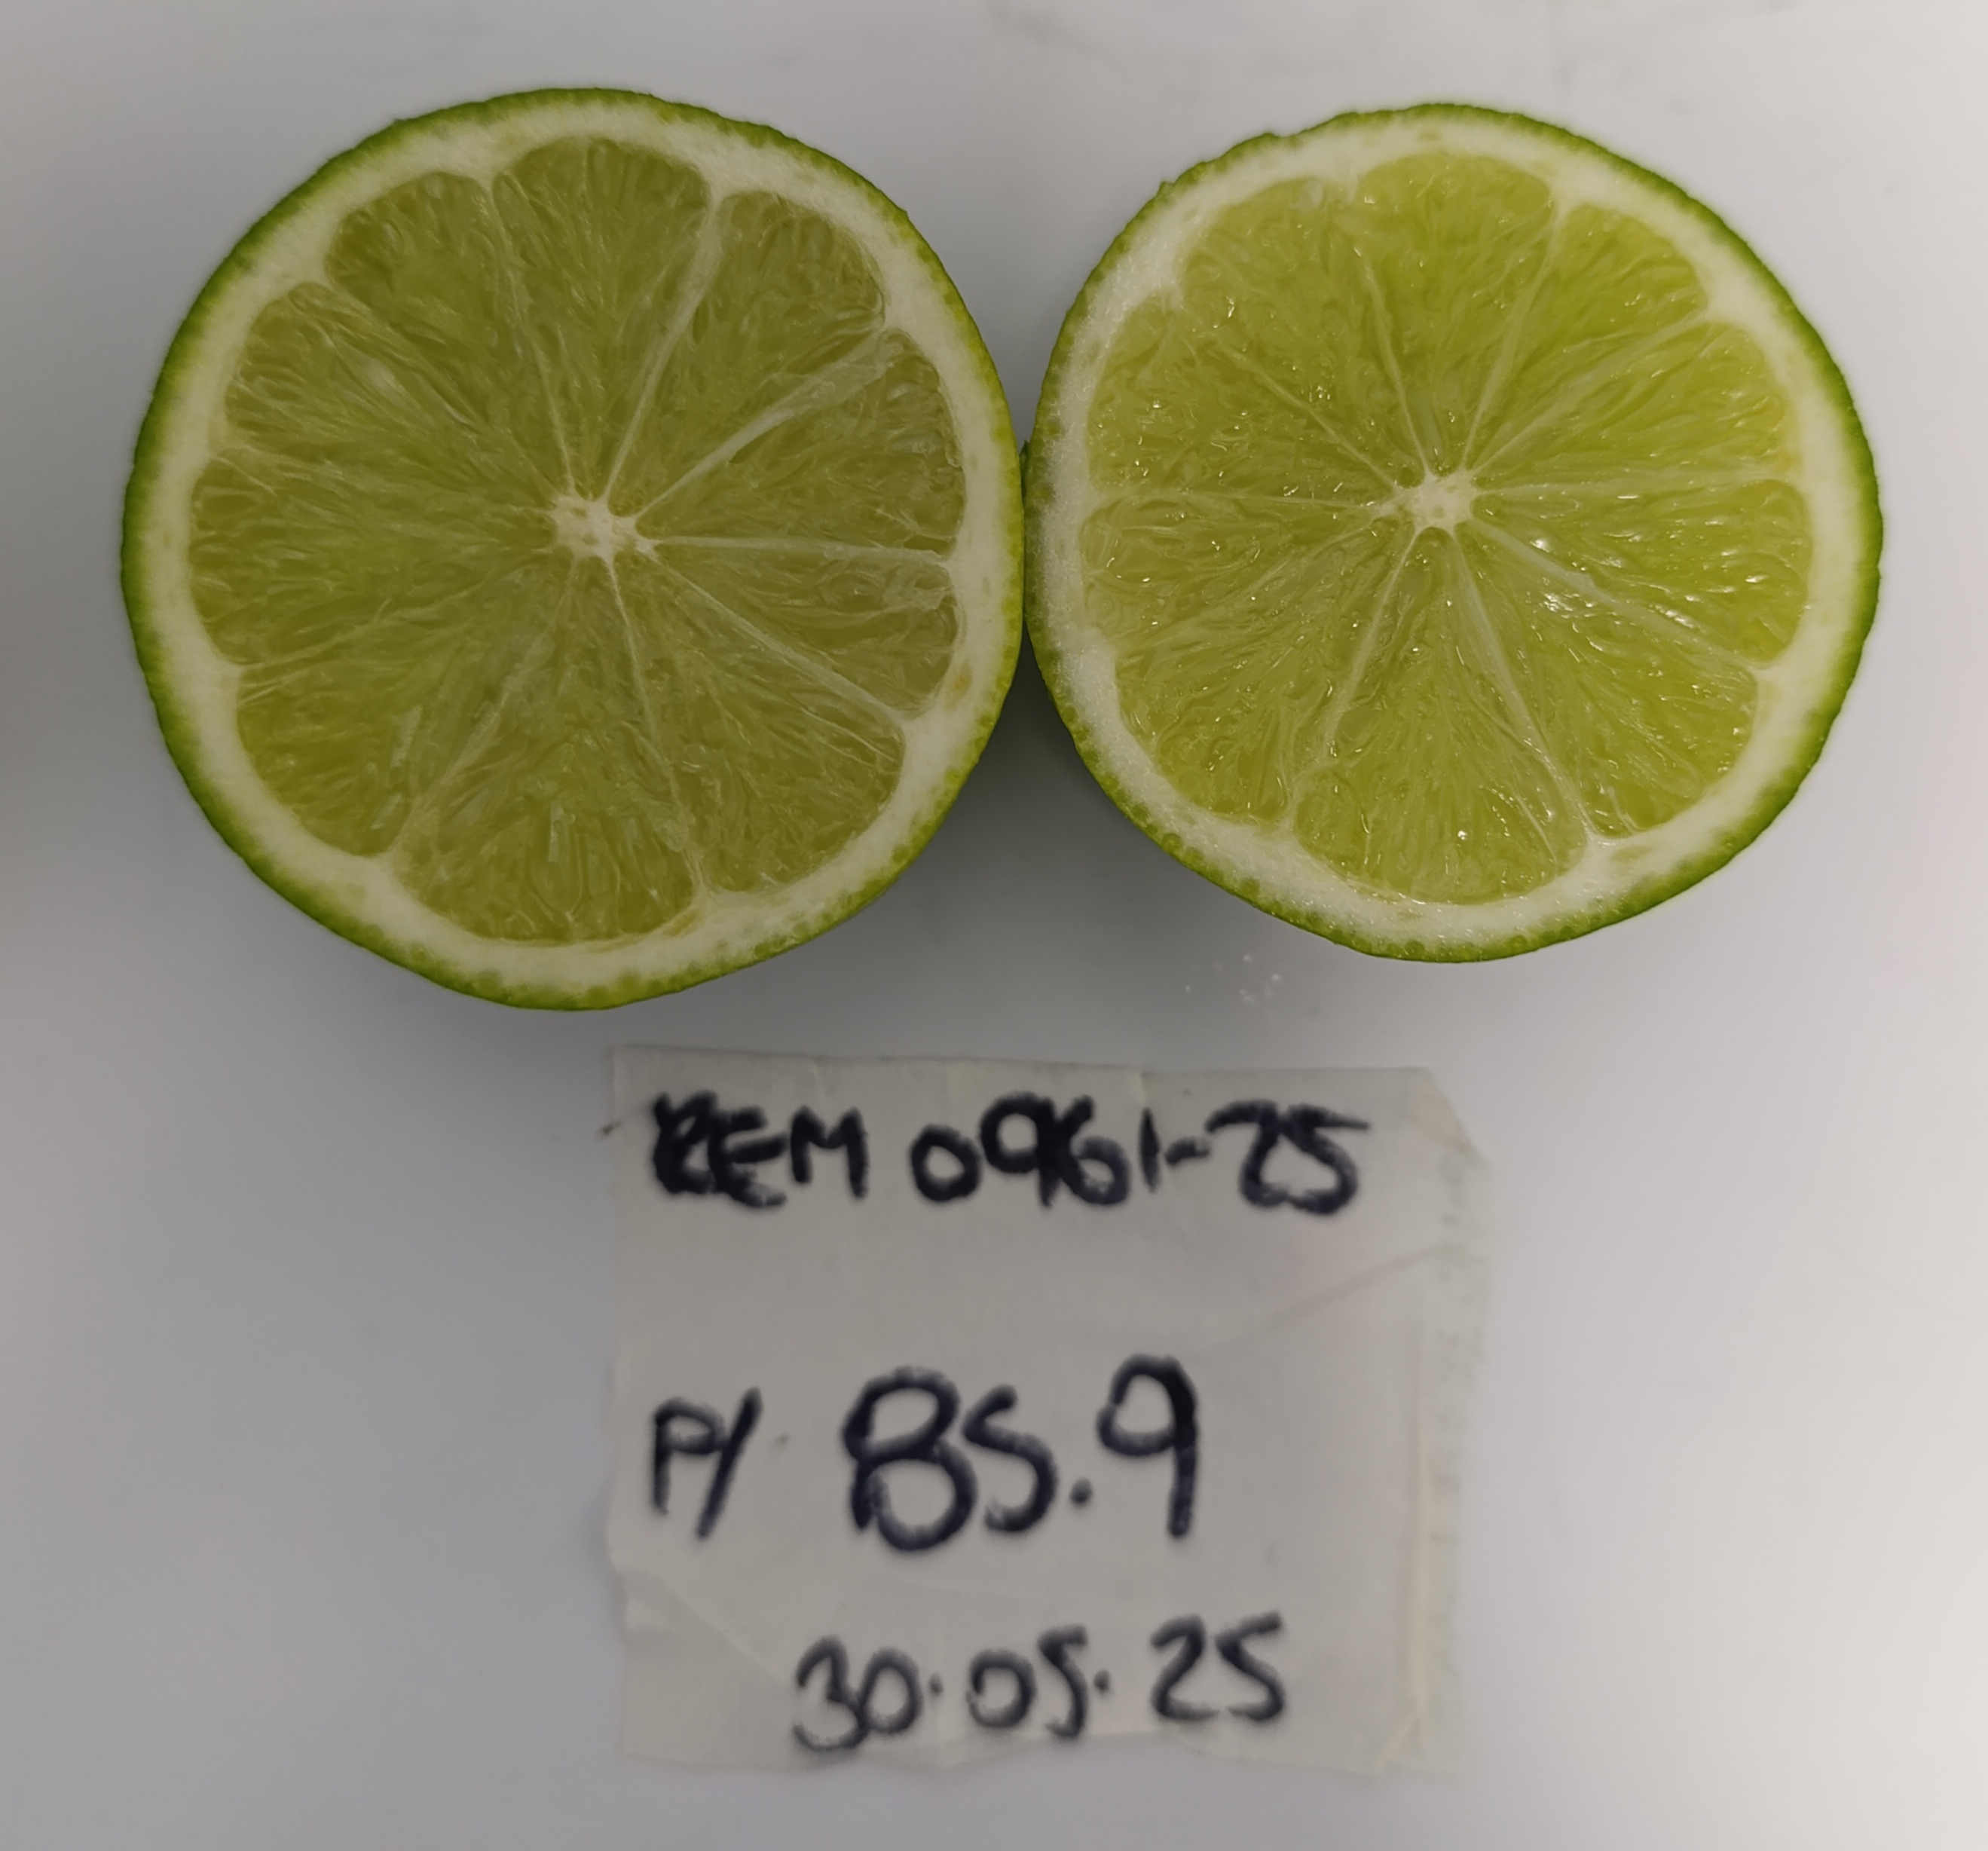 REM 0961-25
P/ 85.9
30.05.25